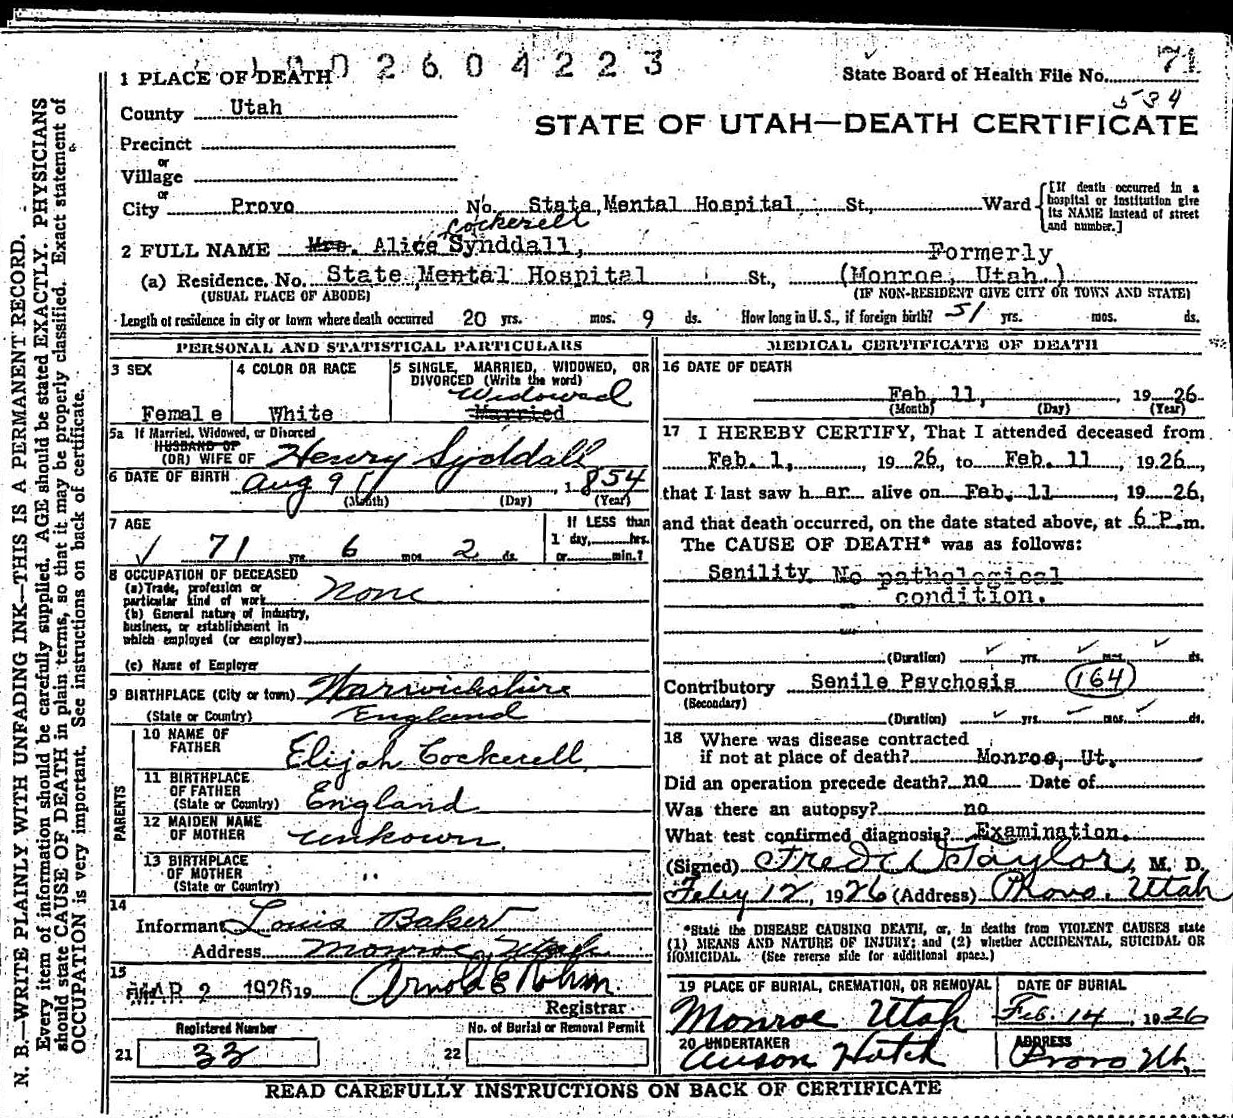 1002604223
1 PLACE OF DEATH
State Board of Health File No. 71
534
County Utah
STATE OF UTAH—DEATH CERTIFICATE
Precinct
or
Village
or
City Provo No. State Mental Hospital St., Ward [If death occurred in a hospital or institution give its NAME instead of street and number.]
Cockerell
2 FULL NAME Mrs. Alice Synddall,
Formerly
(a) Residence, No. State Mental Hospital St., (Monroe, Utah.)
(USUAL PLACE OF ABODE) (IF NON-RESIDENT GIVE CITY OR TOWN AND STATE)
Length of residence in city or town where death occurred 20 yrs. mos. 9 ds. How long in U. S., if foreign birth? 51 yrs. mos. ds.
PERSONAL AND STATISTICAL PARTICULARS
3 SEX
Female
4 COLOR OR RACE
White
5 SINGLE, MARRIED, WIDOWED, OR DIVORCED (Write the word)
Widowed
Married
5a If Married, Widowed, or Divorced
HUSBAND OF
(OR) WIFE OF Henry Syddall
6 DATE OF BIRTH Aug 9, 1854
(Month) (Day) (Year)
7 AGE
71 yrs. 6 mos. 2 ds.
If LESS than
1 day, hrs.
or min.?
8 OCCUPATION OF DECEASED
(a) Trade, profession or
particular kind of work None
(b) General nature of industry,
business, or establishment in
which employed (or employer)
(c) Name of Employer
9 BIRTHPLACE (City or town) Warwickshire
(State or Country) England
PARENTS
10 NAME OF
FATHER Elijah Cockerell
11 BIRTHPLACE
OF FATHER
(State or Country) England
12 MAIDEN NAME
OF MOTHER unkown
13 BIRTHPLACE
OF MOTHER
(State or Country) "
14
Informant Louis Baker
Address Monroe Utah
15
MAR 2 1926 19 Arnold E Rohm.
Registrar
Registered Number
21 33
No. of Burial or Removal Permit
22
MEDICAL CERTIFICATE OF DEATH
16 DATE OF DEATH
Feb. 11, 1926
(Month) (Day) (Year)
17 I HEREBY CERTIFY, That I attended deceased from
Feb. 1, 1926, to Feb. 11, 1926,
that I last saw her alive on Feb. 11, 1926,
and that death occurred, on the date stated above, at 6 P.m.
The CAUSE OF DEATH* was as follows:
Senility No pathological
condition.
(Duration) yrs. mos. ds.
Contributory Senile Psychosis 164
(Secondary)
(Duration) yrs. mos. ds.
18 Where was disease contracted
if not at place of death? Monroe, Ut.
Did an operation precede death? no Date of
Was there an autopsy? no
What test confirmed diagnosis? Examination.
(Signed) Fred D Taylor, M. D.
Feby 12, 1926 (Address) Provo, Utah
*State the DISEASE CAUSING DEATH, or, in deaths from VIOLENT CAUSES state
(1) MEANS AND NATURE OF INJURY; and (2) whether ACCIDENTAL, SUICIDAL OR
HOMICIDAL. (See reverse side for additional space.)
19 PLACE OF BURIAL, CREMATION, OR REMOVAL
Monroe Utah
DATE OF BURIAL
Feb. 14, 1926
20 UNDERTAKER
Hatch
ADDRESS
Provo Ut.
READ CAREFULLY INSTRUCTIONS ON BACK OF CERTIFICATE
N. B.—WRITE PLAINLY WITH UNFADING INK—THIS IS A PERMANENT RECORD.
Every item of information should be carefully supplied. AGE should be stated EXACTLY. PHYSICIANS
should state CAUSE OF DEATH in plain terms, so that it may be properly classified. Exact statement of
OCCUPATION is very important. See instructions on back of certificate.